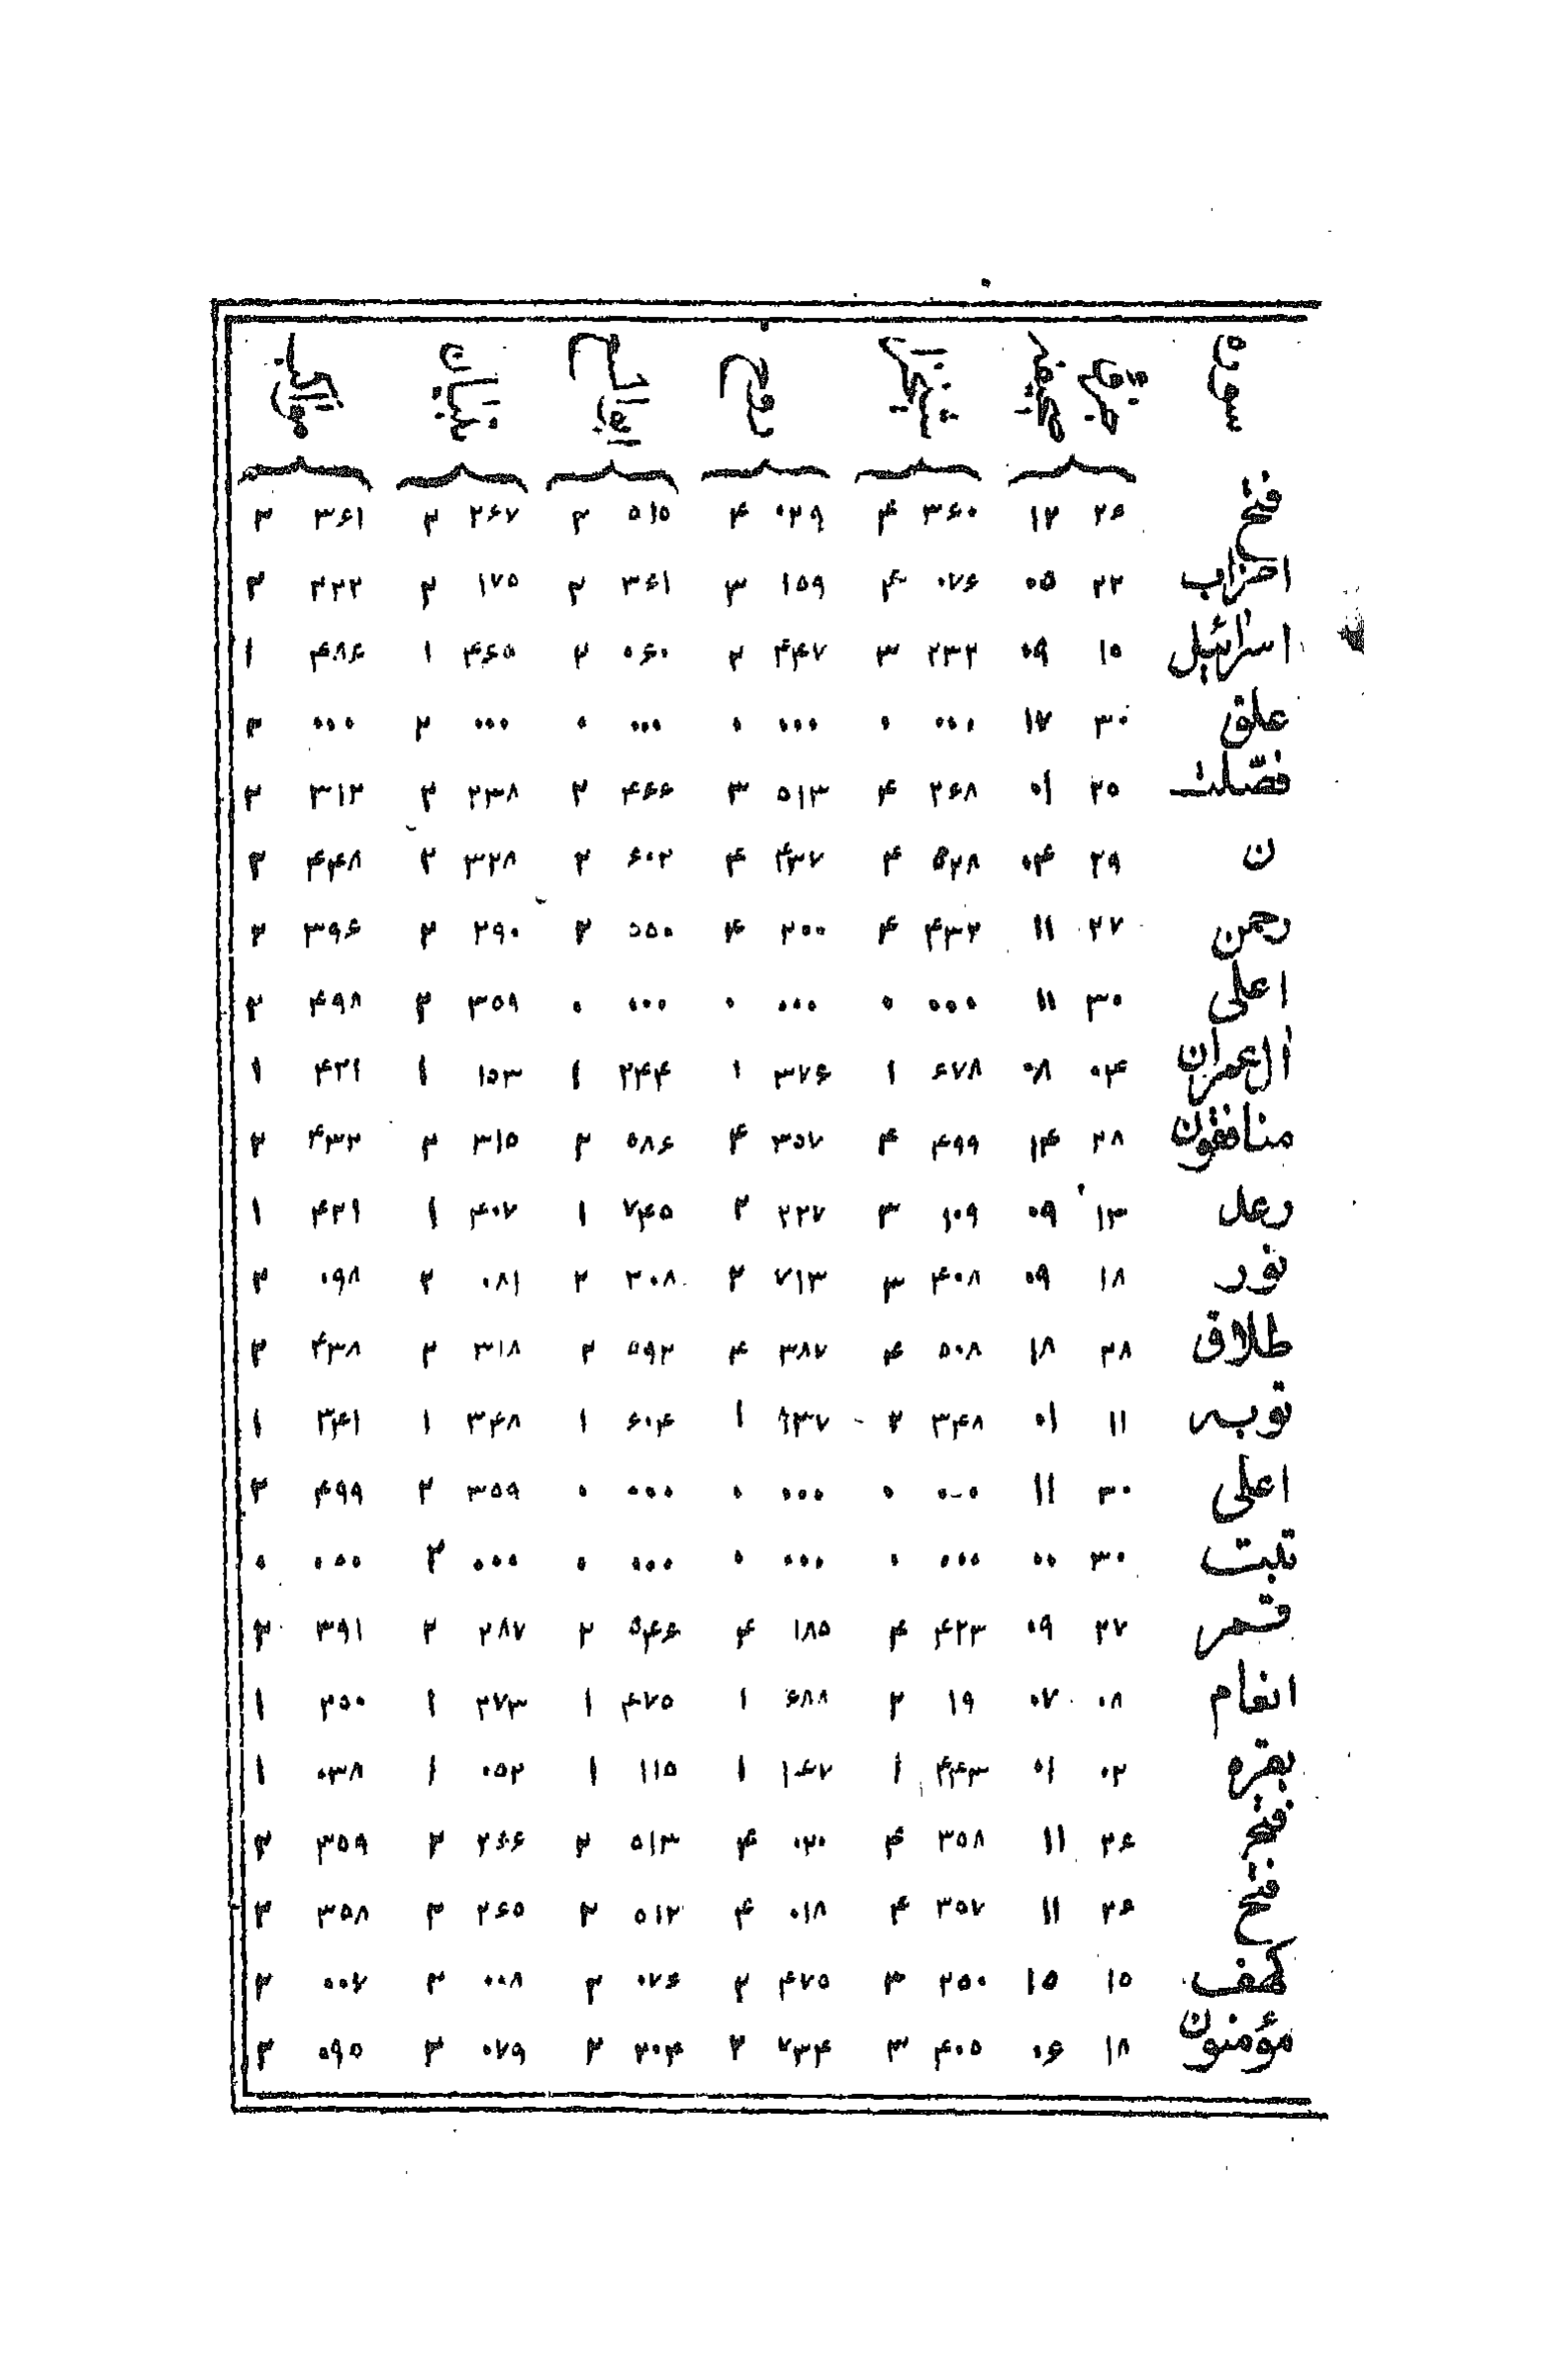 سوره
فتح ۲۶ ۱۲ ۳۶۰ ۴ ۰۲۹ ۴ ۵۱۵ ۲ ۲۶۷ ۲ ۳۶۱ ۲
احزاب ۲۲ ۰۵ ۰۷۶ ۴ ۱۵۹ ۳ ۳۶۱ ۲ ۱۷۵ ۲ ۲۲۲ ۲
اسرائیل ۱۵ ۰۹ ۲۳۲ ۳ ۴۴۷ ۲ ۰۶۰ ۲ ۴۶۵ ۱ ۴۸۶ ۱
علق ۳۰ ۱۷ ۰۰۰ ۰ ۰۰۰ ۰ ۰۰۰ ۰ ۰۰۰ ۲ ۰۰۰ ۲
فصّلت ۲۵ ۰۱ ۲۶۸ ۴ ۵۱۳ ۳ ۴۶۶ ۲ ۲۳۸ ۲ ۳۱۲ ۲
ن ۲۹ ۰۴ ۵۲۸ ۴ ۴۳۷ ۴ ۶۰۲ ۲ ۳۲۸ ۲ ۴۴۸ ۲
رحمن ۲۷ ۱۱ ۴۳۲ ۴ ۲۰۰ ۴ ۵۵۰ ۲ ۲۹۰ ۲ ۳۹۶ ۲
اعلی ۳۰ ۱۱ ۰۰۰ ۰ ۰۰۰ ۰ ۰۰۰ ۰ ۳۵۹ ۲ ۴۹۸ ۲
ال عمران ۰۴ ۰۸ ۶۷۸ ۱ ۳۷۶ ۱ ۲۴۴ ۱ ۱۵۳ ۱ ۴۲۱ ۱
منافقون ۲۸ ۱۴ ۴۹۹ ۴ ۳۵۷ ۴ ۵۸۶ ۲ ۳۱۵ ۲ ۴۳۲ ۲
رعد ۱۳ ۰۹ ۱۰۹ ۳ ۲۲۷ ۲ ۷۴۵ ۱ ۴۰۷ ۱ ۴۲۹ ۱
نور ۱۸ ۰۹ ۴۰۸ ۳ ۷۱۳ ۲ ۲۰۸ ۲ ۰۸۱ ۲ ۰۹۸ ۲
طلاق ۲۸ ۱۸ ۵۰۸ ۴ ۳۸۷ ۴ ۵۹۲ ۲ ۳۱۸ ۲ ۴۳۸ ۲
توبه ۱۱ ۰۱ ۳۴۸ ۲ ۹۳۷ ۱ ۶۰۴ ۱ ۳۴۸ ۱ ۳۴۱ ۱
اعلی ۳۰ ۱۱ ۰۰۰ ۰ ۰۰۰ ۰ ۰۰۰ ۰ ۳۵۹ ۲ ۴۹۹ ۲
تبت ۳۰ ۰۰ ۰۰۰ ۰ ۰۰۰ ۰ ۰۰۰ ۰ ۰۰۰ ۲ ۰۰۰ ۰
قمر ۲۷ ۰۹ ۴۲۳ ۴ ۱۸۵ ۴ ۵۴۶ ۲ ۲۸۷ ۲ ۳۹۱ ۲
انعام ۰۸ ۰۷ ۱۹ ۲ ۶۸۸ ۱ ۴۷۵ ۱ ۲۷۳ ۱ ۲۵۰ ۱
بقره ۰۲ ۰۱ ۴۴۳ ۱ ۱۴۷ ۱ ۱۱۵ ۱ ۰۵۲ ۱ ۰۳۸ ۱
فتح ۲۶ ۱۱ ۳۵۸ ۴ ۰۲۰ ۴ ۵۱۳ ۲ ۲۶۶ ۲ ۳۵۹ ۲
فتح ۲۶ ۱۱ ۳۵۷ ۴ ۰۱۸ ۴ ۵۱۲ ۲ ۲۶۵ ۲ ۳۵۸ ۲
کهف ۱۵ ۱۵ ۲۵۰ ۳ ۴۷۵ ۲ ۰۷۶ ۲ ۰۰۸ ۲ ۰۰۷ ۲
مؤمنون ۱۸ ۰۶ ۴۰۵ ۳ ۷۳۴ ۲ ۲۰۴ ۲ ۰۷۹ ۲ ۰۹۵ ۲